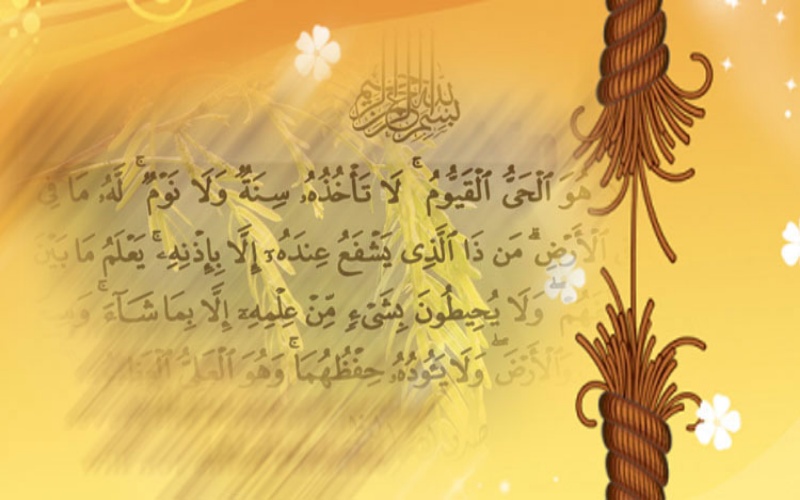 بِسْمِ اللهِ الرَّحْمٰنِ الرَّحِيمِ
هُوَ ٱلْحَىُّ ٱلْقَيُّومُ ۚ لَا تَأْخُذُهُۥ سِنَةٌ وَلَا نَوْمٌ ۚ لَّهُۥ مَا فِى
ٱلْأَرْضِ ۗ مَن ذَا ٱلَّذِى يَشْفَعُ عِندَهُۥٓ إِلَّا بِإِذْنِهِۦ ۚ يَعْلَمُ مَا بَيْنَ
وَلَا يُحِيطُونَ بِشَىْءٍ مِّنْ عِلْمِهِۦٓ إِلَّا بِمَا شَآءَ ۚ
وَٱلْأَرْضَ ۖ وَلَا يَـُٔودُهُۥ حِفْظُهُمَا ۚ وَهُوَ ٱلْعَلِىُّ